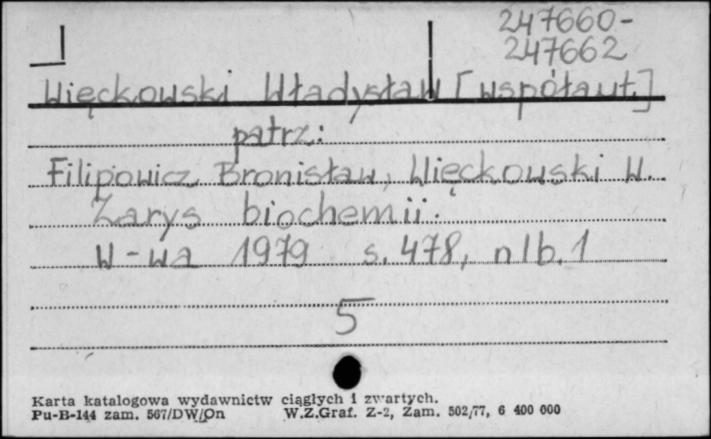 247660-
247662
Więckowski Władysław [współaut.]
patrz:
Filipowicz Bronisław, Więckowski W.
Zarys biochemii.
W-wa 1979 s. 478, nlb. 1
5
Karta katalogowa wydawnictw ciągłych i zwartych.
Pu-B-144 zam. 567/DW/On W.Z.Graf. Z-2, Zam. 502/77, 6 400 000